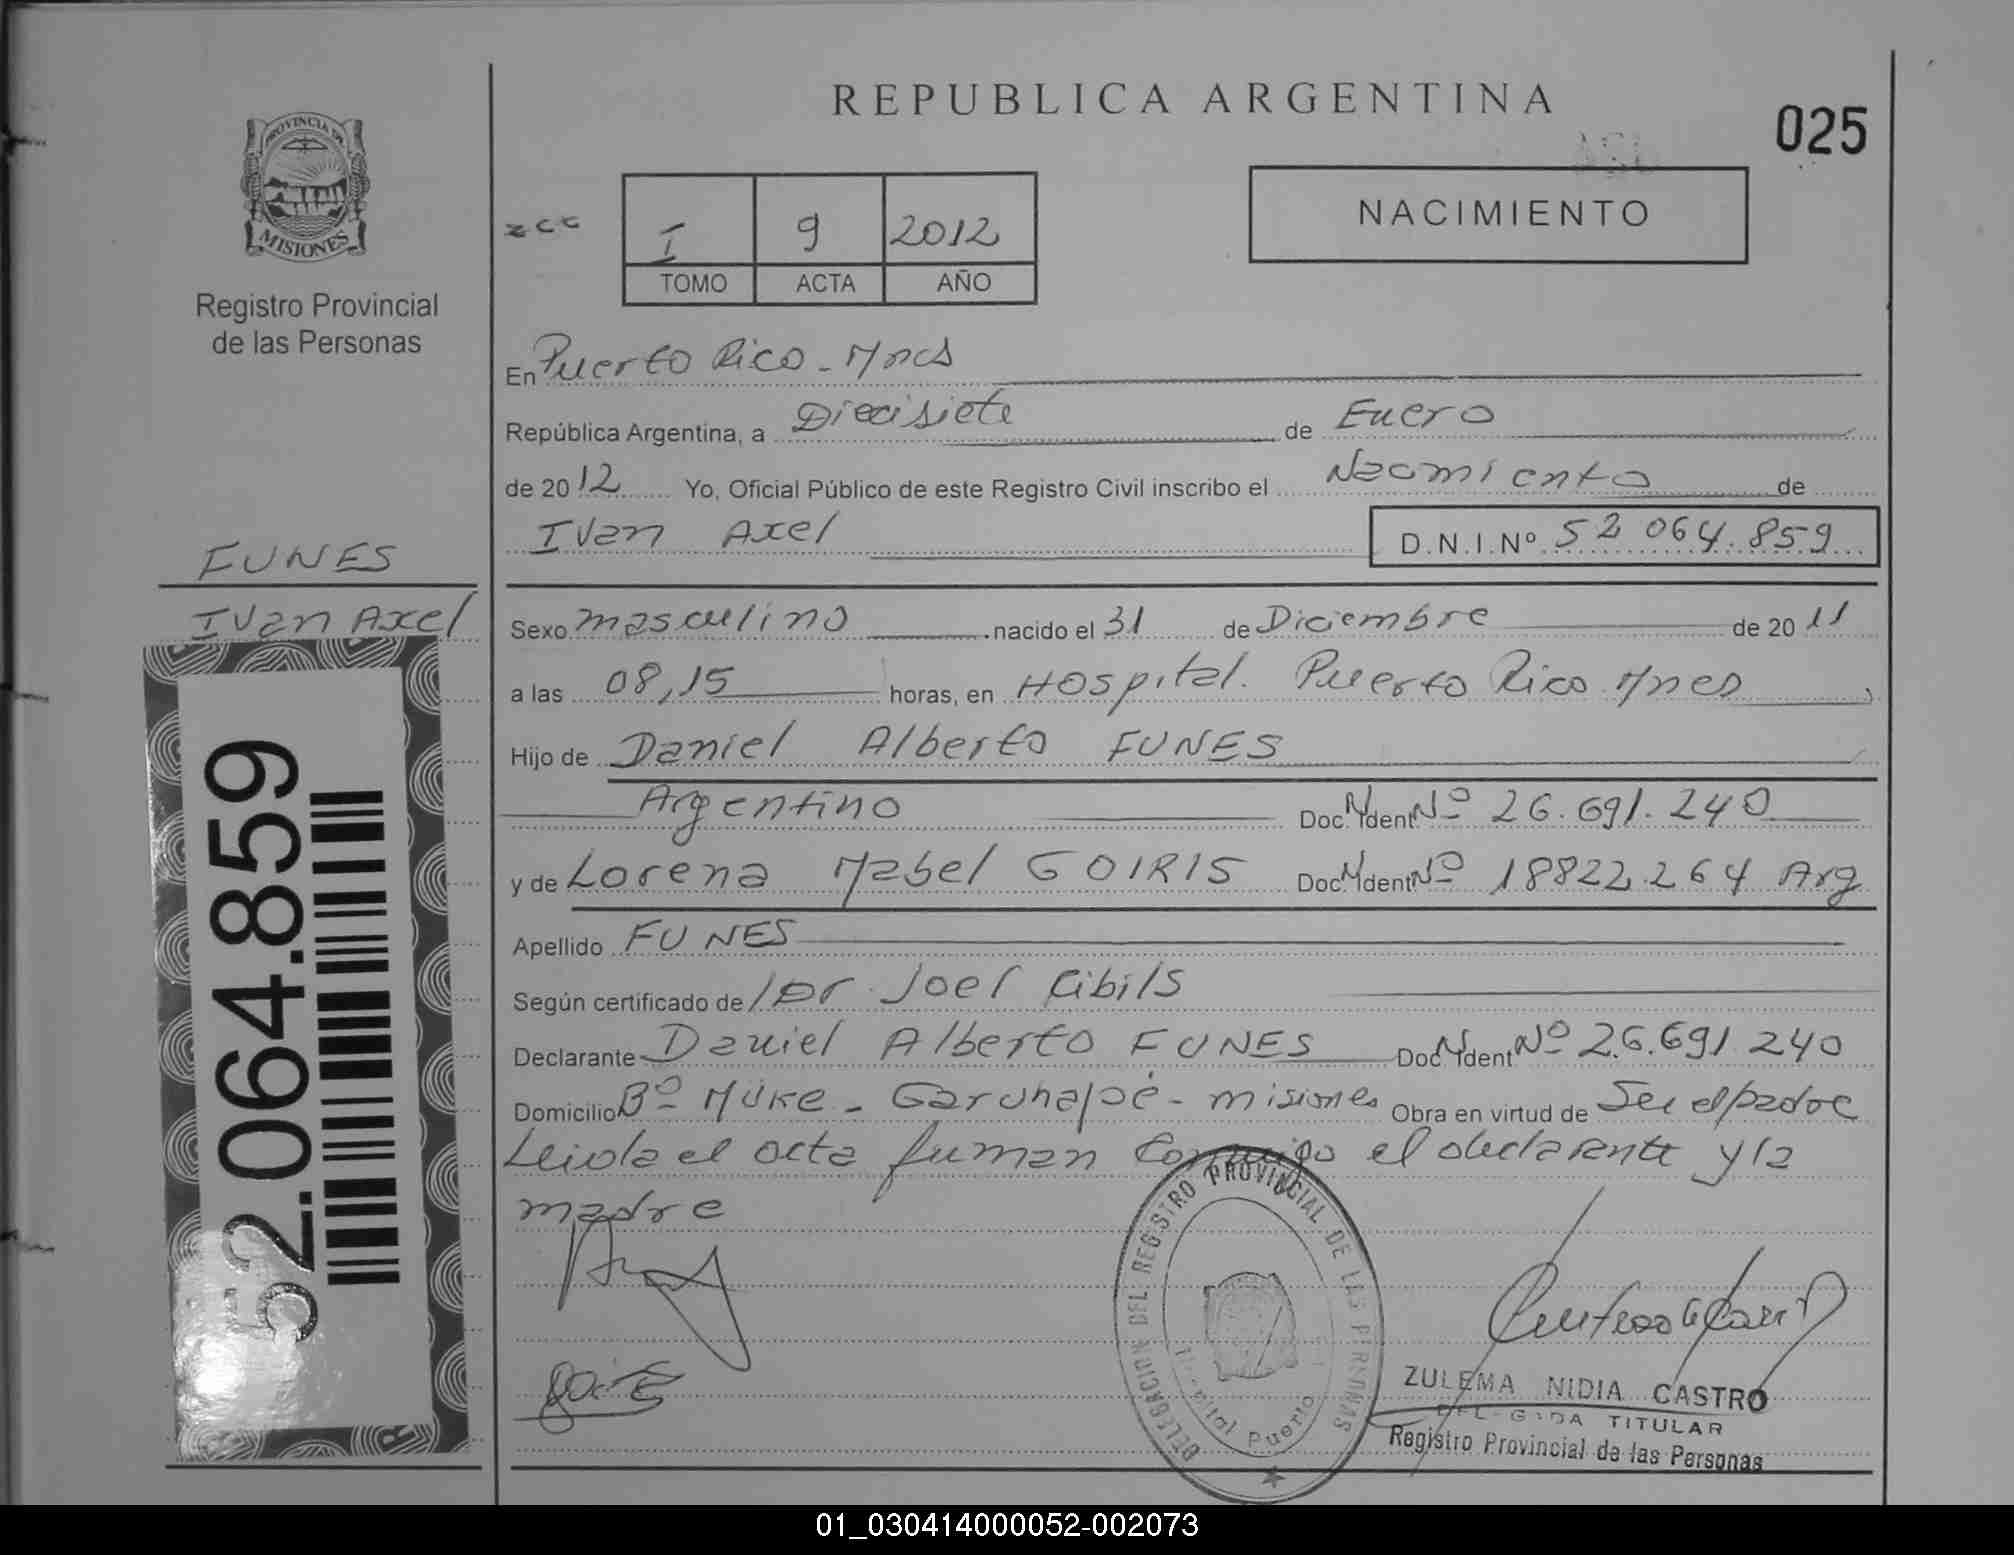 REPUBLICA ARGENTINA
025
PROVINCIA DE
MISIONES
Registro Provincial
de las Personas
zcc
I 9 2012
TOMO ACTA AÑO
NACIMIENTO
En Puerto Rico - Mnes
República Argentina, a Diecisiete de Enero
de 2012 Yo, Oficial Público de este Registro Civil inscribo el Nacimiento de
Ivan Axel D.N.I.Nº 52 064.859
FUNES
Ivan Axel
Sexo masculino nacido el 31 de Diciembre de 2011
a las 08,15 horas, en Hospital. Puerto Rico Mnes
Hijo de Daniel Alberto FUNES
Argentino Doc. Ident Nº 26.691.240
y de Lorena Mabel GOIRIS Doc. Ident Nº 18822.264 Arg
Apellido FUNES
Según certificado de Dr. Joel Cibils
Declarante Daniel Alberto FUNES Doc. Ident Nº 26.691.240
Domicilio Bº Garuhapé - misiones Obra en virtud de Ser el padre
Leida el acta firman conmigo el declarante y la
madre
52.064.859
DELEGACION DEL REGISTRO PROVINCIAL DE LAS PERSONAS
Hospital Puerto
ZULEMA NIDIA CASTRO
DELEGADA TITULAR
Registro Provincial de las Personas
01_030414000052-002073